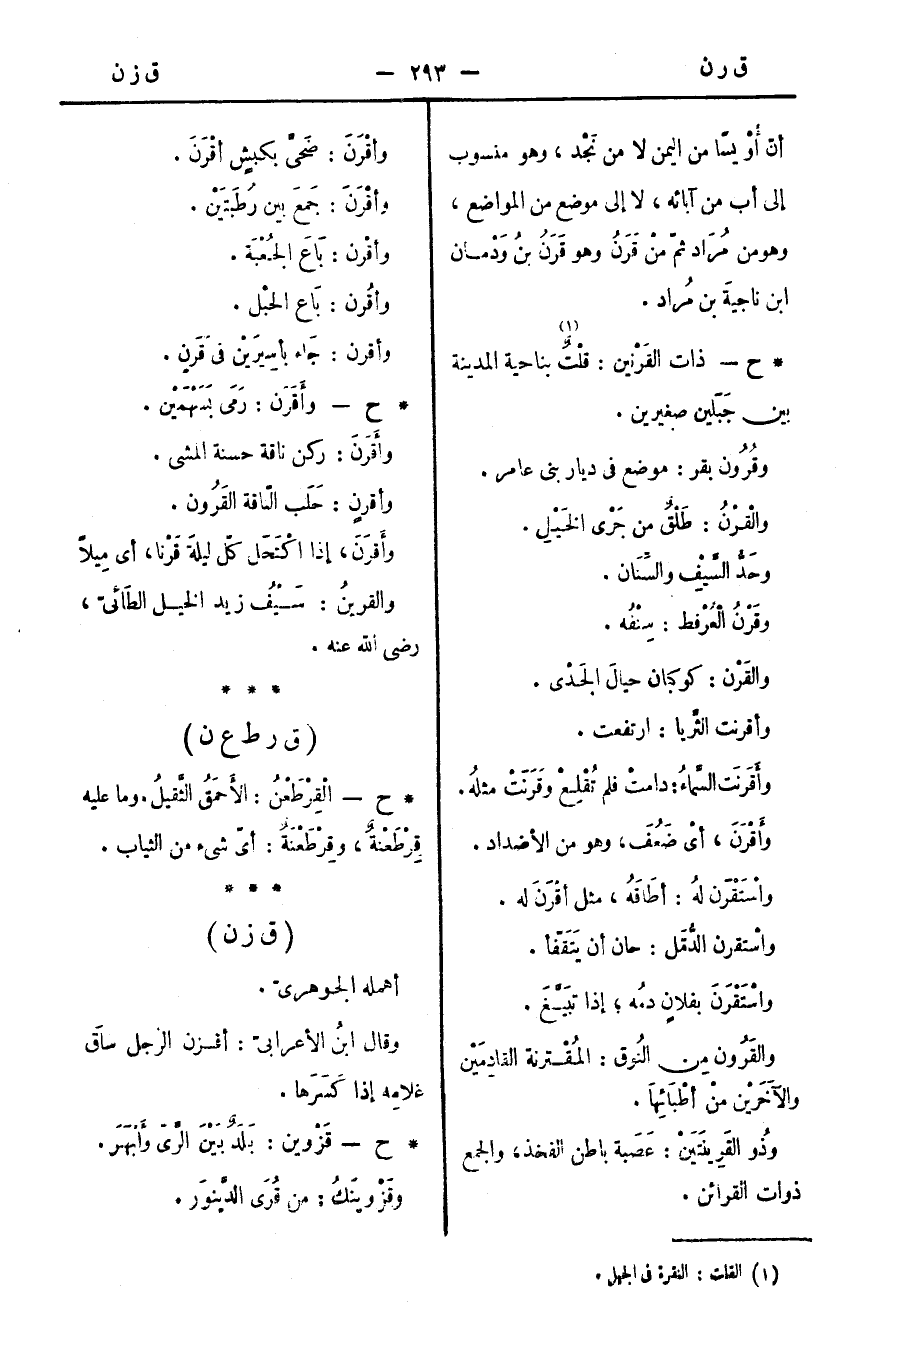 ق رن
— ٢٩٣ —
ق زن
أنّ أُوَيسًا من اليمن لا من نَجْد ، وهو منسوب
إلى أب من آبائه ، لا إلى موضع من المواضع ،
وهو من مُرَاد ثمّ منْ قَرَنُ وهو قَرَنُ بنُ رَدْمان
ابن ناجيةَ بن مُراد .
* ح — ذات القَرْنين : قَلْتٌ (١) بناحية المدينة
بين جَبَلين صغيرين .
وقُرُون بقر : موضع فى ديار بنى عامر .
والْقَرْنُ : طَلْقٌ من جَرْى الخَيْلِ .
وحَدُّ السَّيْفِ والسِّنَان .
وقَرْنُ الْعُرْفط : سِنْفُه .
والقَرْن : كوكبان حيالَ الجَدْى .
وأقرنت الثُّريا : ارتفعت .
وأَقْرَنَت السَّماءُ : دامتْ فلم تُقْلِعْ وقَرَنَتْ مثلهُ .
وأَقْرَنَ ، أىْ ضَعُفَ ، وهو من الأضداد .
واسْتَقْرَن لهُ : أطَاقَهُ ، مثل أقْرَنَ له .
واسْتقرن الدُّمَّل : حان أن يَتَفَقَّأ .
واسْتَقْرَنَ بفلانٍ دمُه ؛ إذا تَبَيَّغَ .
والقَرُون من النُوق : المُقْترنة القادِمَيْن
والآخَرَيْن منْ أطْبَائِهَا .
وذُو القَرِينَتَيْنْ : عَصَبة باطن الفخذ ، والجمع
ذوات القرائن .
وأقْرَنَ : ضَحَّى بكبشٍ أقْرَنَ .
وأقْرَنَ : جَمَعَ بين رُطَبَتَيْن .
وأقْرن : بَاعَ الجَعْبَة .
وأقْرن : بَاع الحَبْل .
وأقرن : جَاء بأسِيرَيْن فى قَرَنٍ .
* ح — وأَقْرَن : رَمَى بسَهْمَيْن .
وأَقْرَنَ : ركن ناقة حسنة المشى .
وأقرن : حَلَب النّاقة القَرُون .
وأَقرَنَ ، إذا اكْتَحَل كلّ ليلةَ قَرْنا ، أى مِيلاً
والقرينُ : سَيْفُ زيد الخيل الطَّائىّ ،
رضى الله عنه .
* * *
(ق ر ط ع ن)
* ح — الْقِرْطَعْنُ : الأَحمَقُ الثَّقيلُ . وما عليه
قِرْطَعْنةٌ ، وقِرْطَعْنَةٌ : أىّ شىء من الثياب .
* * *
(ق زن)
أهمله الجوهرىّ .
وقال ابنُ الأعرابىّ : أقْزن الرّجل ساَق
غلامِه إذا كَسَرَها .
* ح — قَزْوين : بَلَدٌ بَيْنَ الرَّىّ وأَبْهَر .
وقَزْوِينَكُ : من قُرَى الدِّينَوَر .
(١) القلت : النقرة فى الجبل .